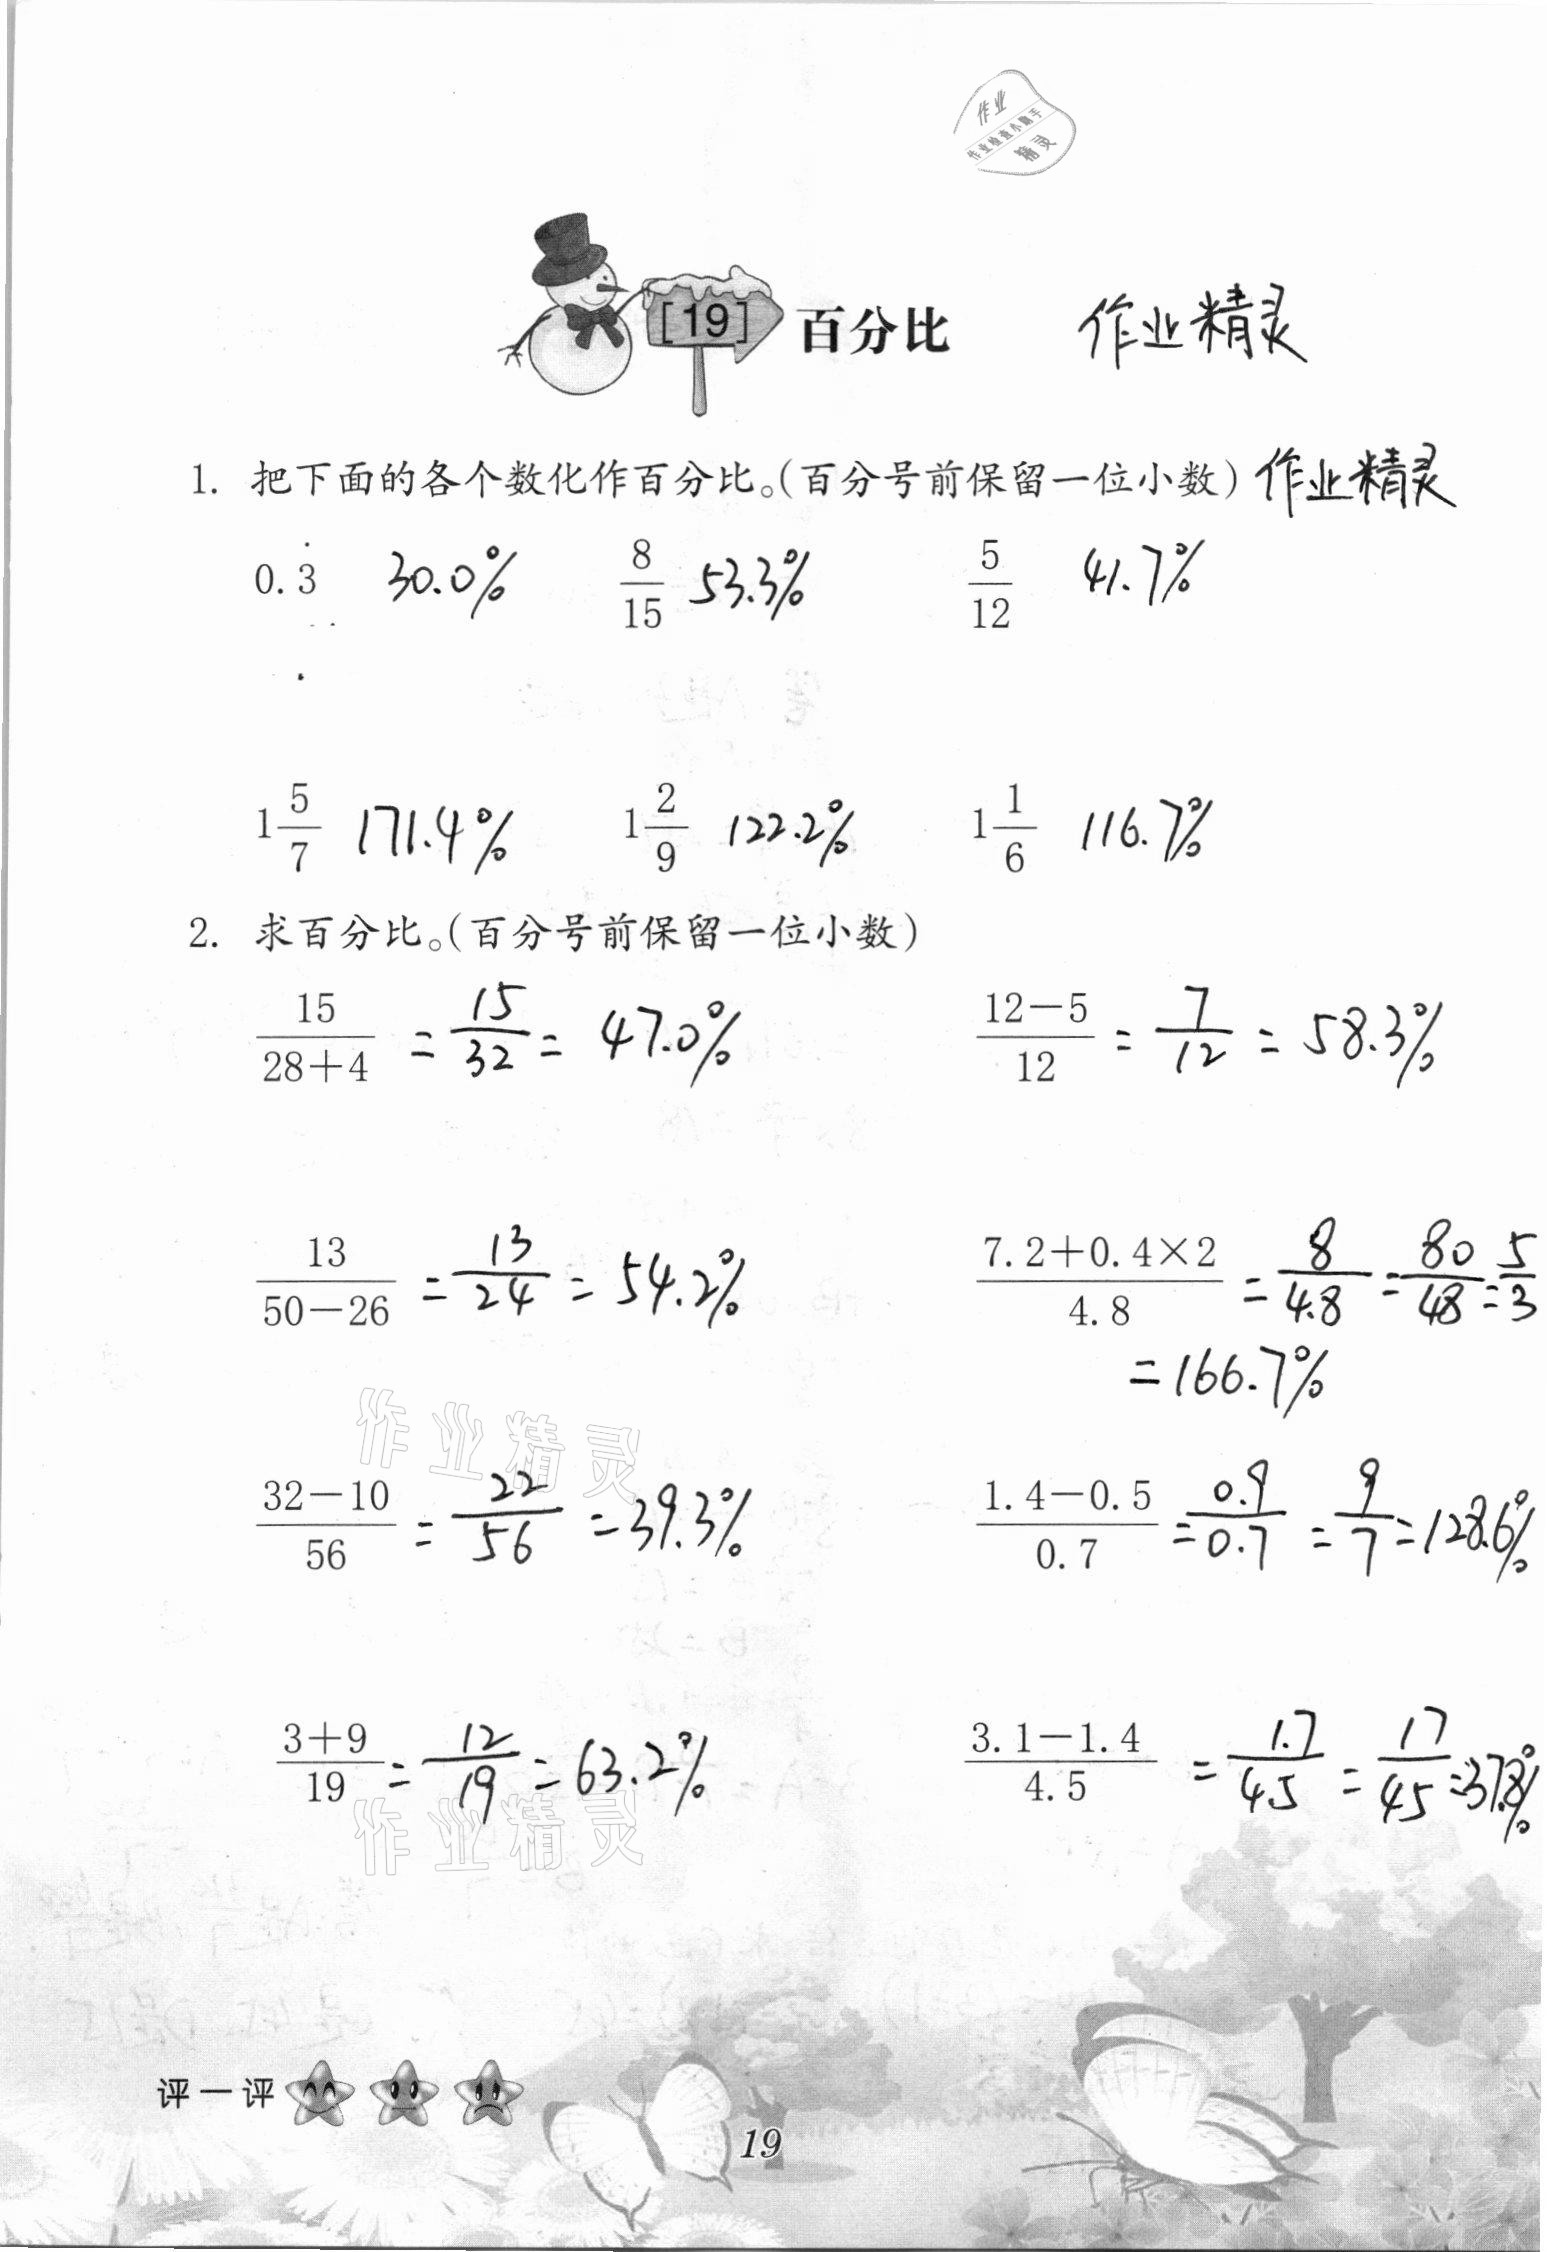 作业
作业检查小助手
精灵
[19] 百分比 作业精灵
1. 把下面的各个数化作百分比。(百分号前保留一位小数) 作业精灵
0.3̇ 30.0% 8/15 53.3% 5/12 41.7%
1 5/7 171.4% 1 2/9 122.2% 1 1/6 116.7%
2. 求百分比。(百分号前保留一位小数)
15/(28+4) = 15/32 = 47.0% (12-5)/12 = 7/12 = 58.3%
13/(50-26) = 13/24 = 54.2% (7.2+0.4×2)/4.8 = 8/4.8 = 80/48 = 5/3
= 166.7%
作业精灵
(32-10)/56 = 22/56 = 39.3% (1.4-0.5)/0.7 = 0.9/0.7 = 9/7 = 128.6%
(3+9)/19 = 12/19 = 63.2% (3.1-1.4)/4.5 = 1.7/4.5 = 17/45 = 37.8%
作业精灵
评一评
19